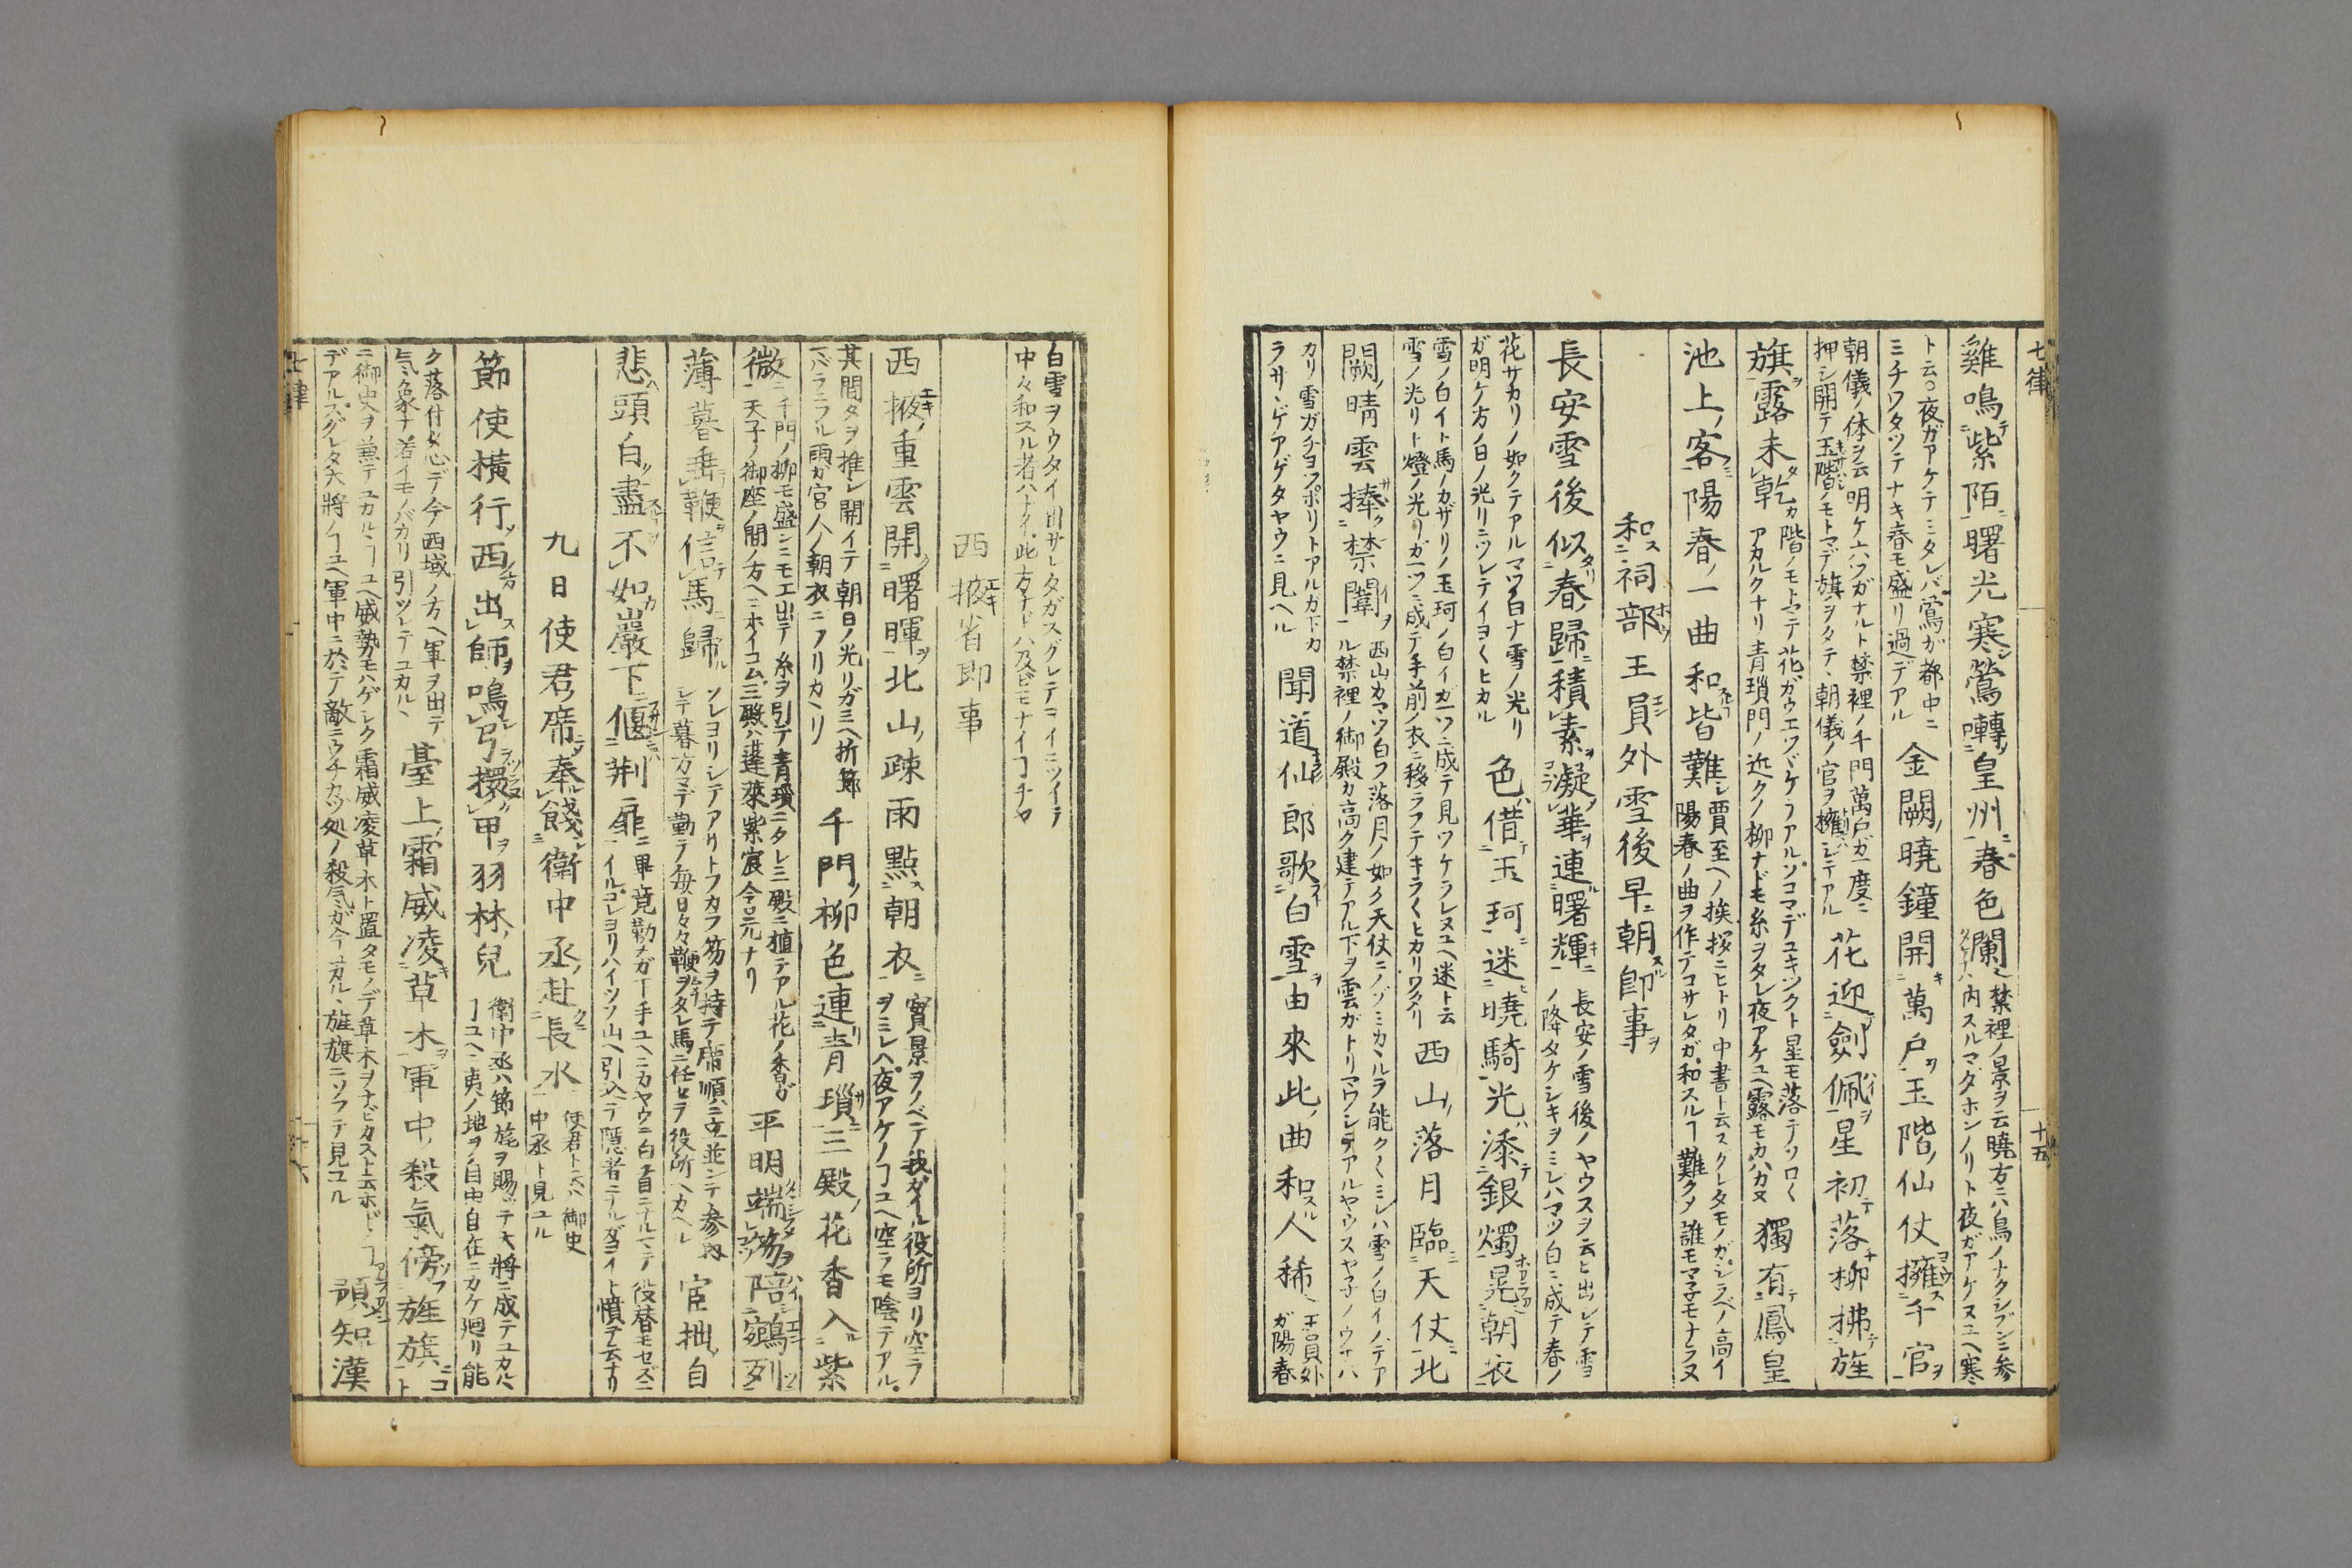 七律
十五
雞鳴紫陌曙光寒鶯囀皇州春色闌
禁裡ノ景ヲ云曉方ニハ鳥ノナクジブンニ参
内スルマダホンノリト夜ガアケヌユヘ寒
ト云○夜ガアケテミタレバ鶯ガ都中ニ
ミチワタツテナキ春モ盛リ過デアル
金闕曉鐘開萬戸玉階仙仗擁千官
朝儀ノ体ヲ云明ケ六ツガナルト禁裡ノ千門萬戸ガ一度ニ
押シ開テ玉階ノモトマデ旗ヲタテ、朝儀ノ官ヲ擁シテアル
花迎劍佩星初落柳拂旌
旗露未乾
階ノモトマテ花ガウエツヾケテアルソコマデユキツクト星モ落テソロ〱
アカルクナリ青瑣門ノ近クノ柳ナドモ糸ヲタレ夜アケユヘ露モカハカヌ
獨有鳳皇
池上客陽春一曲和皆難
賈至ヘノ挨拶ニヒトリ中書ト云スグレタモノガシラベノ高イ
陽春ノ曲ヲ作テコサレタガ和スルヿ難クメ誰モマ子モナラヌ
和祠部王員外雪後早朝卽事
長安雪後似春歸積素凝華連曙輝
長安ノ雪後ノヤウスヲ云ヒ出シテ雪
ノ降タケシキヲミレハマツ白ニ成テ春ノ
花サカリノ如クテアルマツ白ナ雪ノ光リ
ガ明ケ方ノ日ノ光リニツレテイヨ〱ヒカル
色借玉珂迷曉騎光添銀燭晃朝衣
雪ノ白イト馬ノカザリノ玉珂ノ白イガ一ツニ成テ見ワケラレヌユヘ迷ト云
雪ノ光リト燈ノ光リガ一ツニ成テ手前ノ衣ニ移ラフテキラ〱ヒカリワタリ
西山落月臨天仗北
闕晴雲捧禁闈
西山カマツ白フ落月ノ如ク天仗ニノゾミカヽルヲ能ク〱ミレハ雪ノ白イノデア
ル禁裡ノ御殿カ高ク建テアル下ヲ雲ガトリマワシテアルヤウスヤ子ノウヘハ
カリ雪ガチヨツポリトアルガ下カ
ラサヽゲアゲタヤウニ見ヘル
聞道仙郎歌白雪由來此曲和人稀
王員外
ガ陽春
白雪ヲウタイ出サレタガスグレテヨイニツイテ
中々和スル者ハナイ此方ナドハ及ビモナイヿチヤ
西掖省卽事
西掖重雲開曙暉北山疎雨點朝衣
實景ヲノベテ我ガイル役所ヨリ空ラ
ヲミレハ夜アケノヿユヘ空ラモ陰テアル
其間タヲ推シ開イテ朝日ノ光リガ三ヘ折節
バラニフル雨カ宮人ノ朝衣ニフリカヽリ
千門柳色連青瑣三殿花香入紫
微
千門ノ柳モ盛ンニモエ出テ糸ヲ引テ青瑣ニタレ三殿ニ植テアル花ノ香ガ
天子ノ御座ノ間ノ方ヘニホイコム三殿ハ蓬萊紫宸含元ナリ
平明端笏陪鵷列
薄暮垂鞭信馬歸
ソレヨリシテアサリトフカラ笏ヲ持テ席順ニ立並ンテ参内
シテ暮方マデ勤テ毎日々々鞭ヲタレ馬ニ任セテ役所ヘカヘル
宦拙自
悲頭白盡不如巖下偃荆扉
畢竟勤ガ下手ユヘニカヤウニ白首ニナルマテ役替モセズニ
イルコレヨリハイツソ山ヘ引込テ隱者ニナルガヨイト憤テ云ナリ
九日使君席奉餞衛中丞赴長水
使君トハ御史
中丞ト見ユル
節使橫行西出師鳴弓擐甲羽林兒
衛中丞ハ節旄ヲ賜ツテ大將ニ成テユカルヽ
ヿユヘニ夷ノ地ヲ自由自在ニカケ廻リ能
ク落付タ心デ今西域ノ方ヘ軍ヲ出テ
氣象ナ若イモノバカリ引ツレテユカルヽ
臺上霜威凌草木軍中殺氣傍旌旗
ニ御史ヲ兼テユカルヽヿユヘ威勢モハゲシク霜威凌草木ト置タモノデ草木ヲナビカスト云ホドノヿ
デアルスグレタ大將ノヿユヘ軍中ニ於テ敵ニウチカツ処ノ殺氣ガ今ユカルヽ旌旗ニソフテ見ユル
預知漢
七律
十六